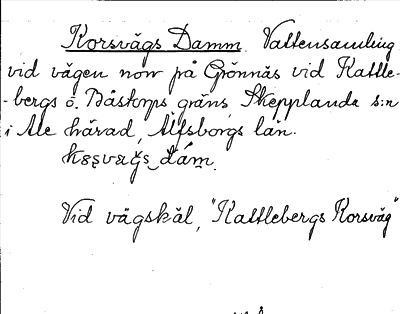 Korsvägs Damm. Vattensamling
vid vägen norr på Grönnäs vid Kattle-
-bergs o. Båstorps gräns, Skepplanda s:n
i Ale härad, Älfsborgs län.
dám.
Vid vägskäl, "Kattlebergs Korsväg"